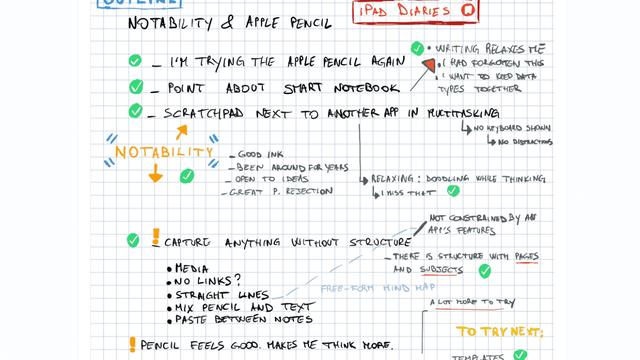 OUTLINE
iPAD DIARIES
NOTABILITY & APPLE PENCIL
– I'M TRYING THE APPLE PENCIL AGAIN
– POINT ABOUT SMART NOTEBOOK
– SCRATCHPAD NEXT TO ANOTHER APP IN MULTITASKING
• WRITING RELAXES ME
• I HAD FORGOTTEN THIS
• I WANT TO KEEP DATA
TYPES TOGETHER
NO KEYBOARD SHOWN
NO DISTRACTIONS
NOTABILITY
– GOOD INK
– BEEN AROUND FOR YEARS
– OPEN TO IDEAS
– GREAT P. REJECTION
RELAXING: DOODLING WHILE THINKING
I MISS THAT
! – CAPTURE ANYTHING WITHOUT STRUCTURE
NOT CONSTRAINED BY AN
APP'S FEATURES
– THERE IS STRUCTURE WITH PAGES
AND SUBJECTS
• MEDIA
• NO LINKS?
• STRAIGHT LINES
• MIX PENCIL AND TEXT
• PASTE BETWEEN NOTES
FREE-FORM MIND MAP
A LOT MORE TO TRY
TO TRY NEXT:
TEMPLATES
! PENCIL FEELS GOOD. MAKES ME THINK MORE.